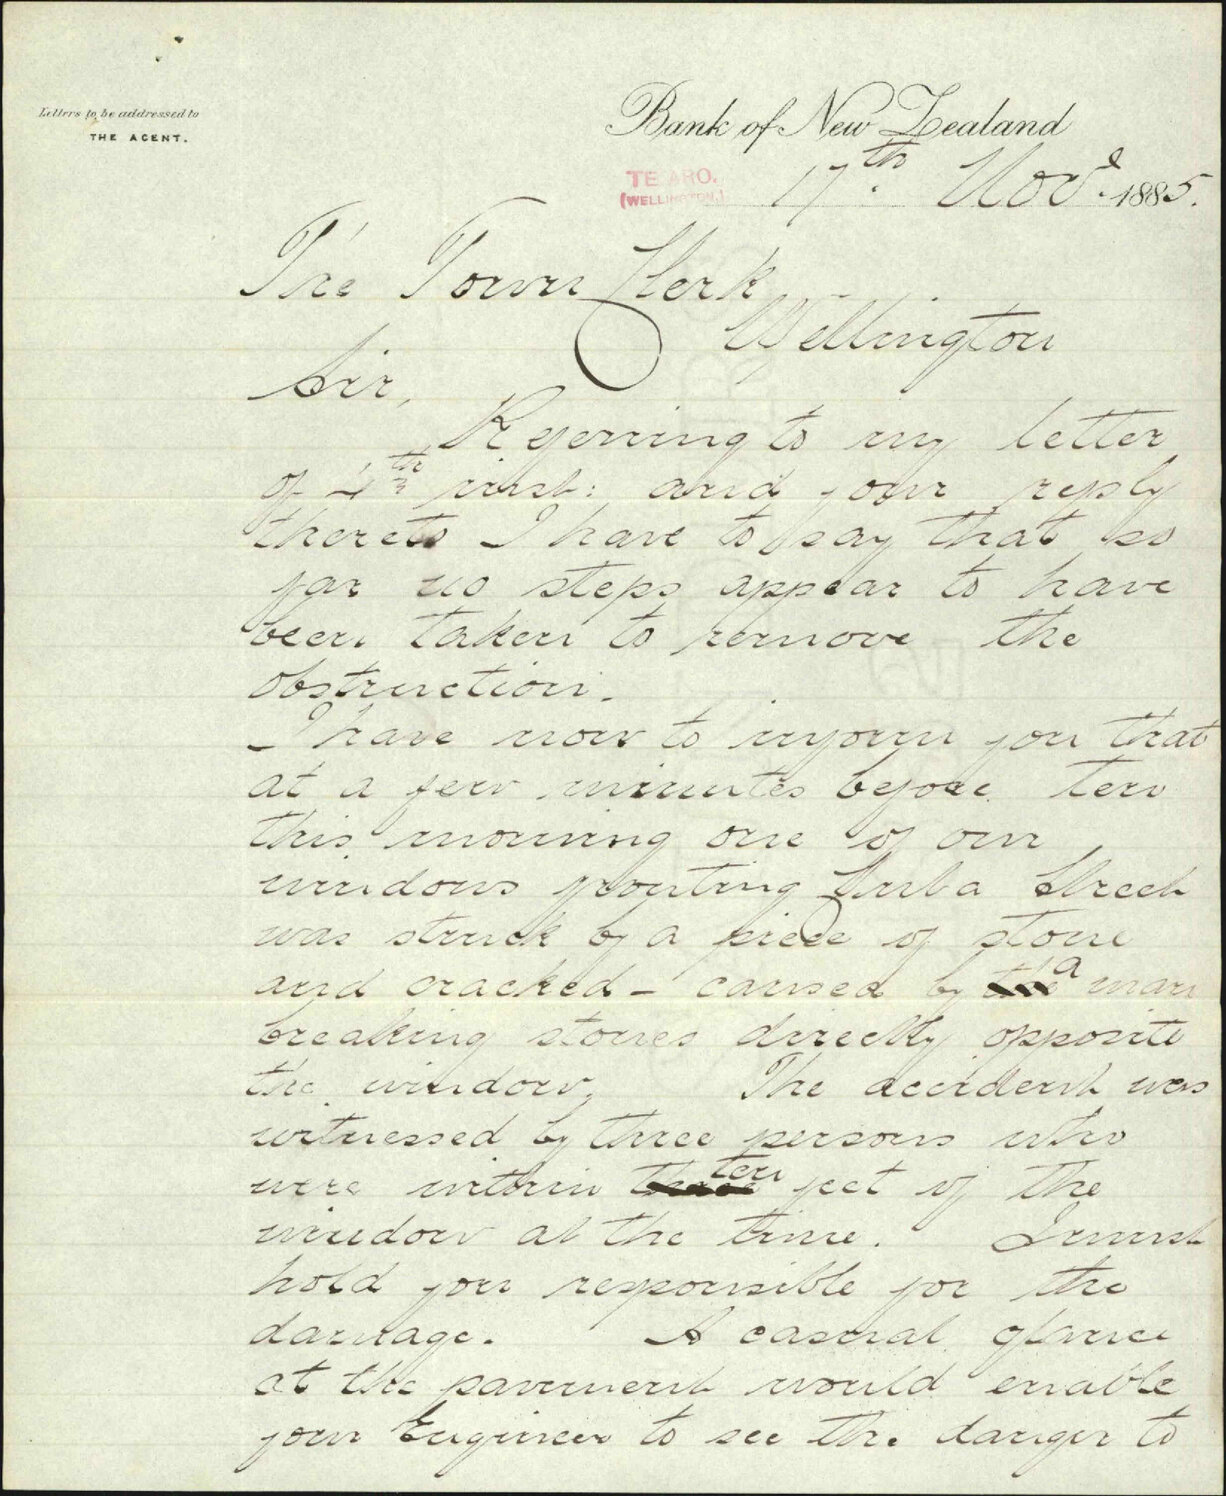 Letters to be addressed to
THE AGENT.
Bank of New Zealand
TE ARO.
(WELLINGTON.)
17th. Novr. 1885.
The Town Clerk
Wellington
Sir,
Referring to my letter
of 4th inst: and your reply
thereto I have to say that so
far no steps appear to have
been taken to remove the
obstruction.
I have now to inform you that
at a few minutes before ten
this morning one of our
windows fronting Cuba Street
was struck by a piece of stone
and cracked - caused by a man
breaking stones directly opposite
the window. The accident was
witnessed by three persons who
were within ten feet of the
window at the time. I must
hold you responsible for the
damage. A casual glance
at the pavement would enable
your Engineer to see the danger to